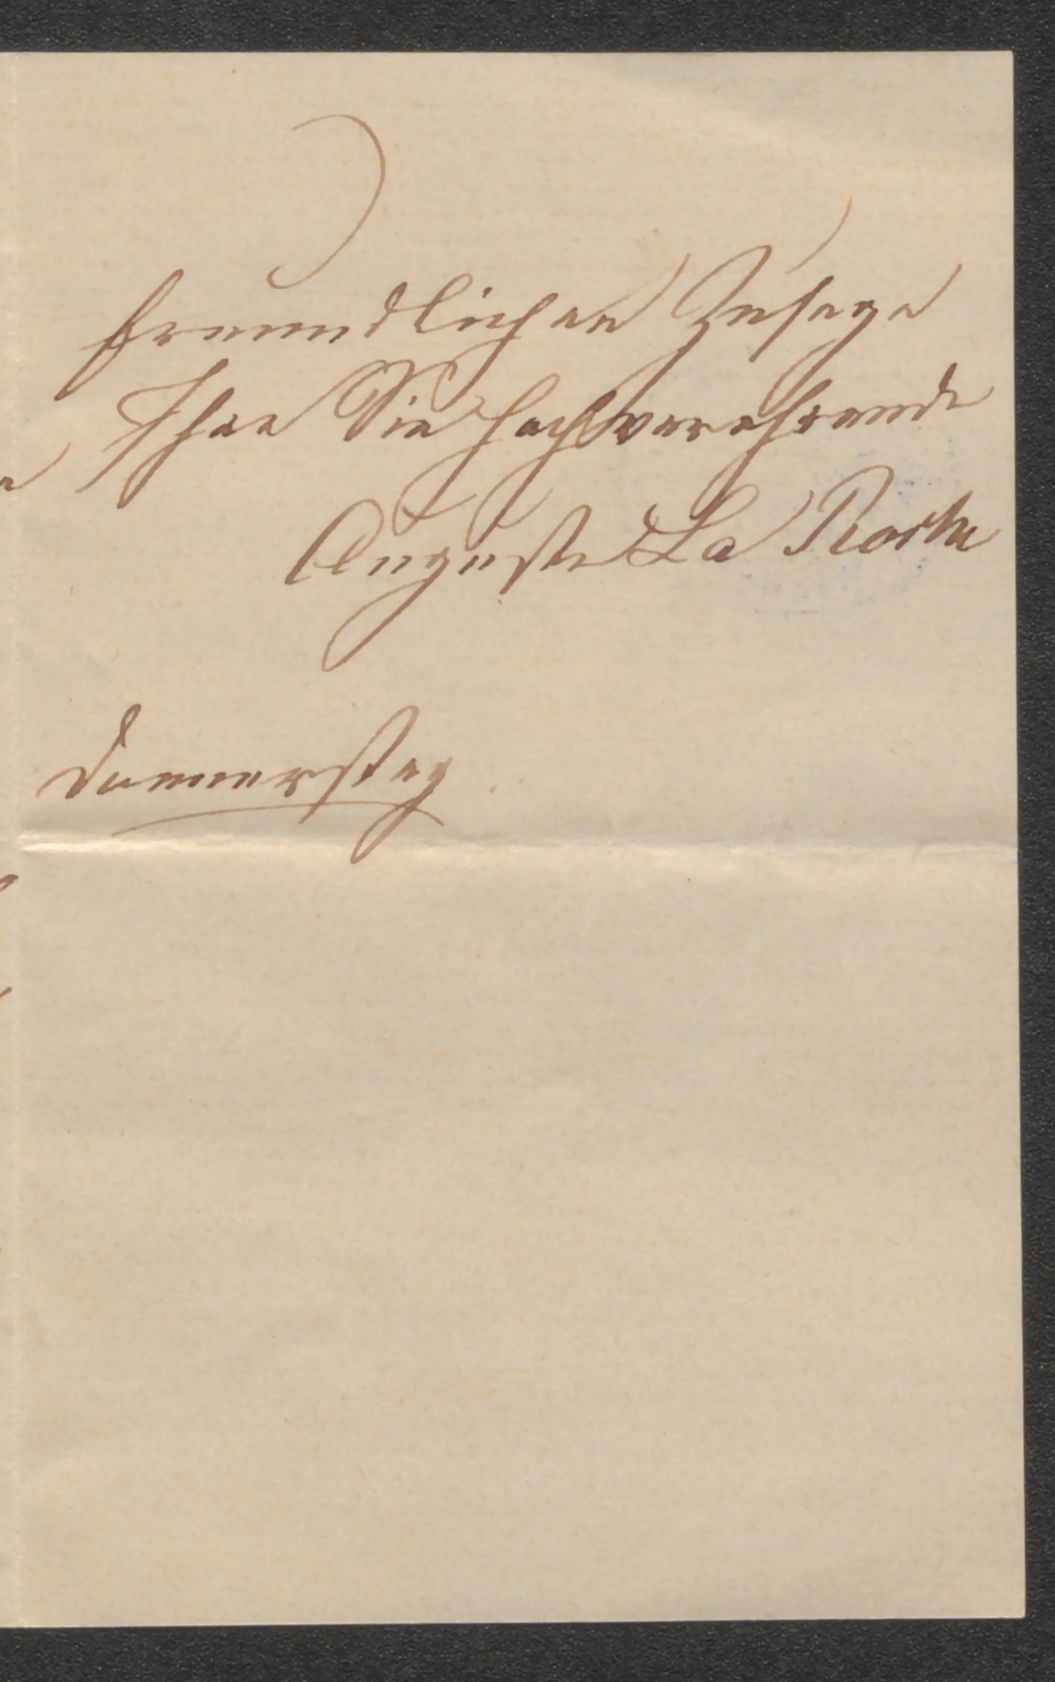 freundlichen Zusage
Ihre Sie hochverehrende
Auguste La Roche
Donnerstag